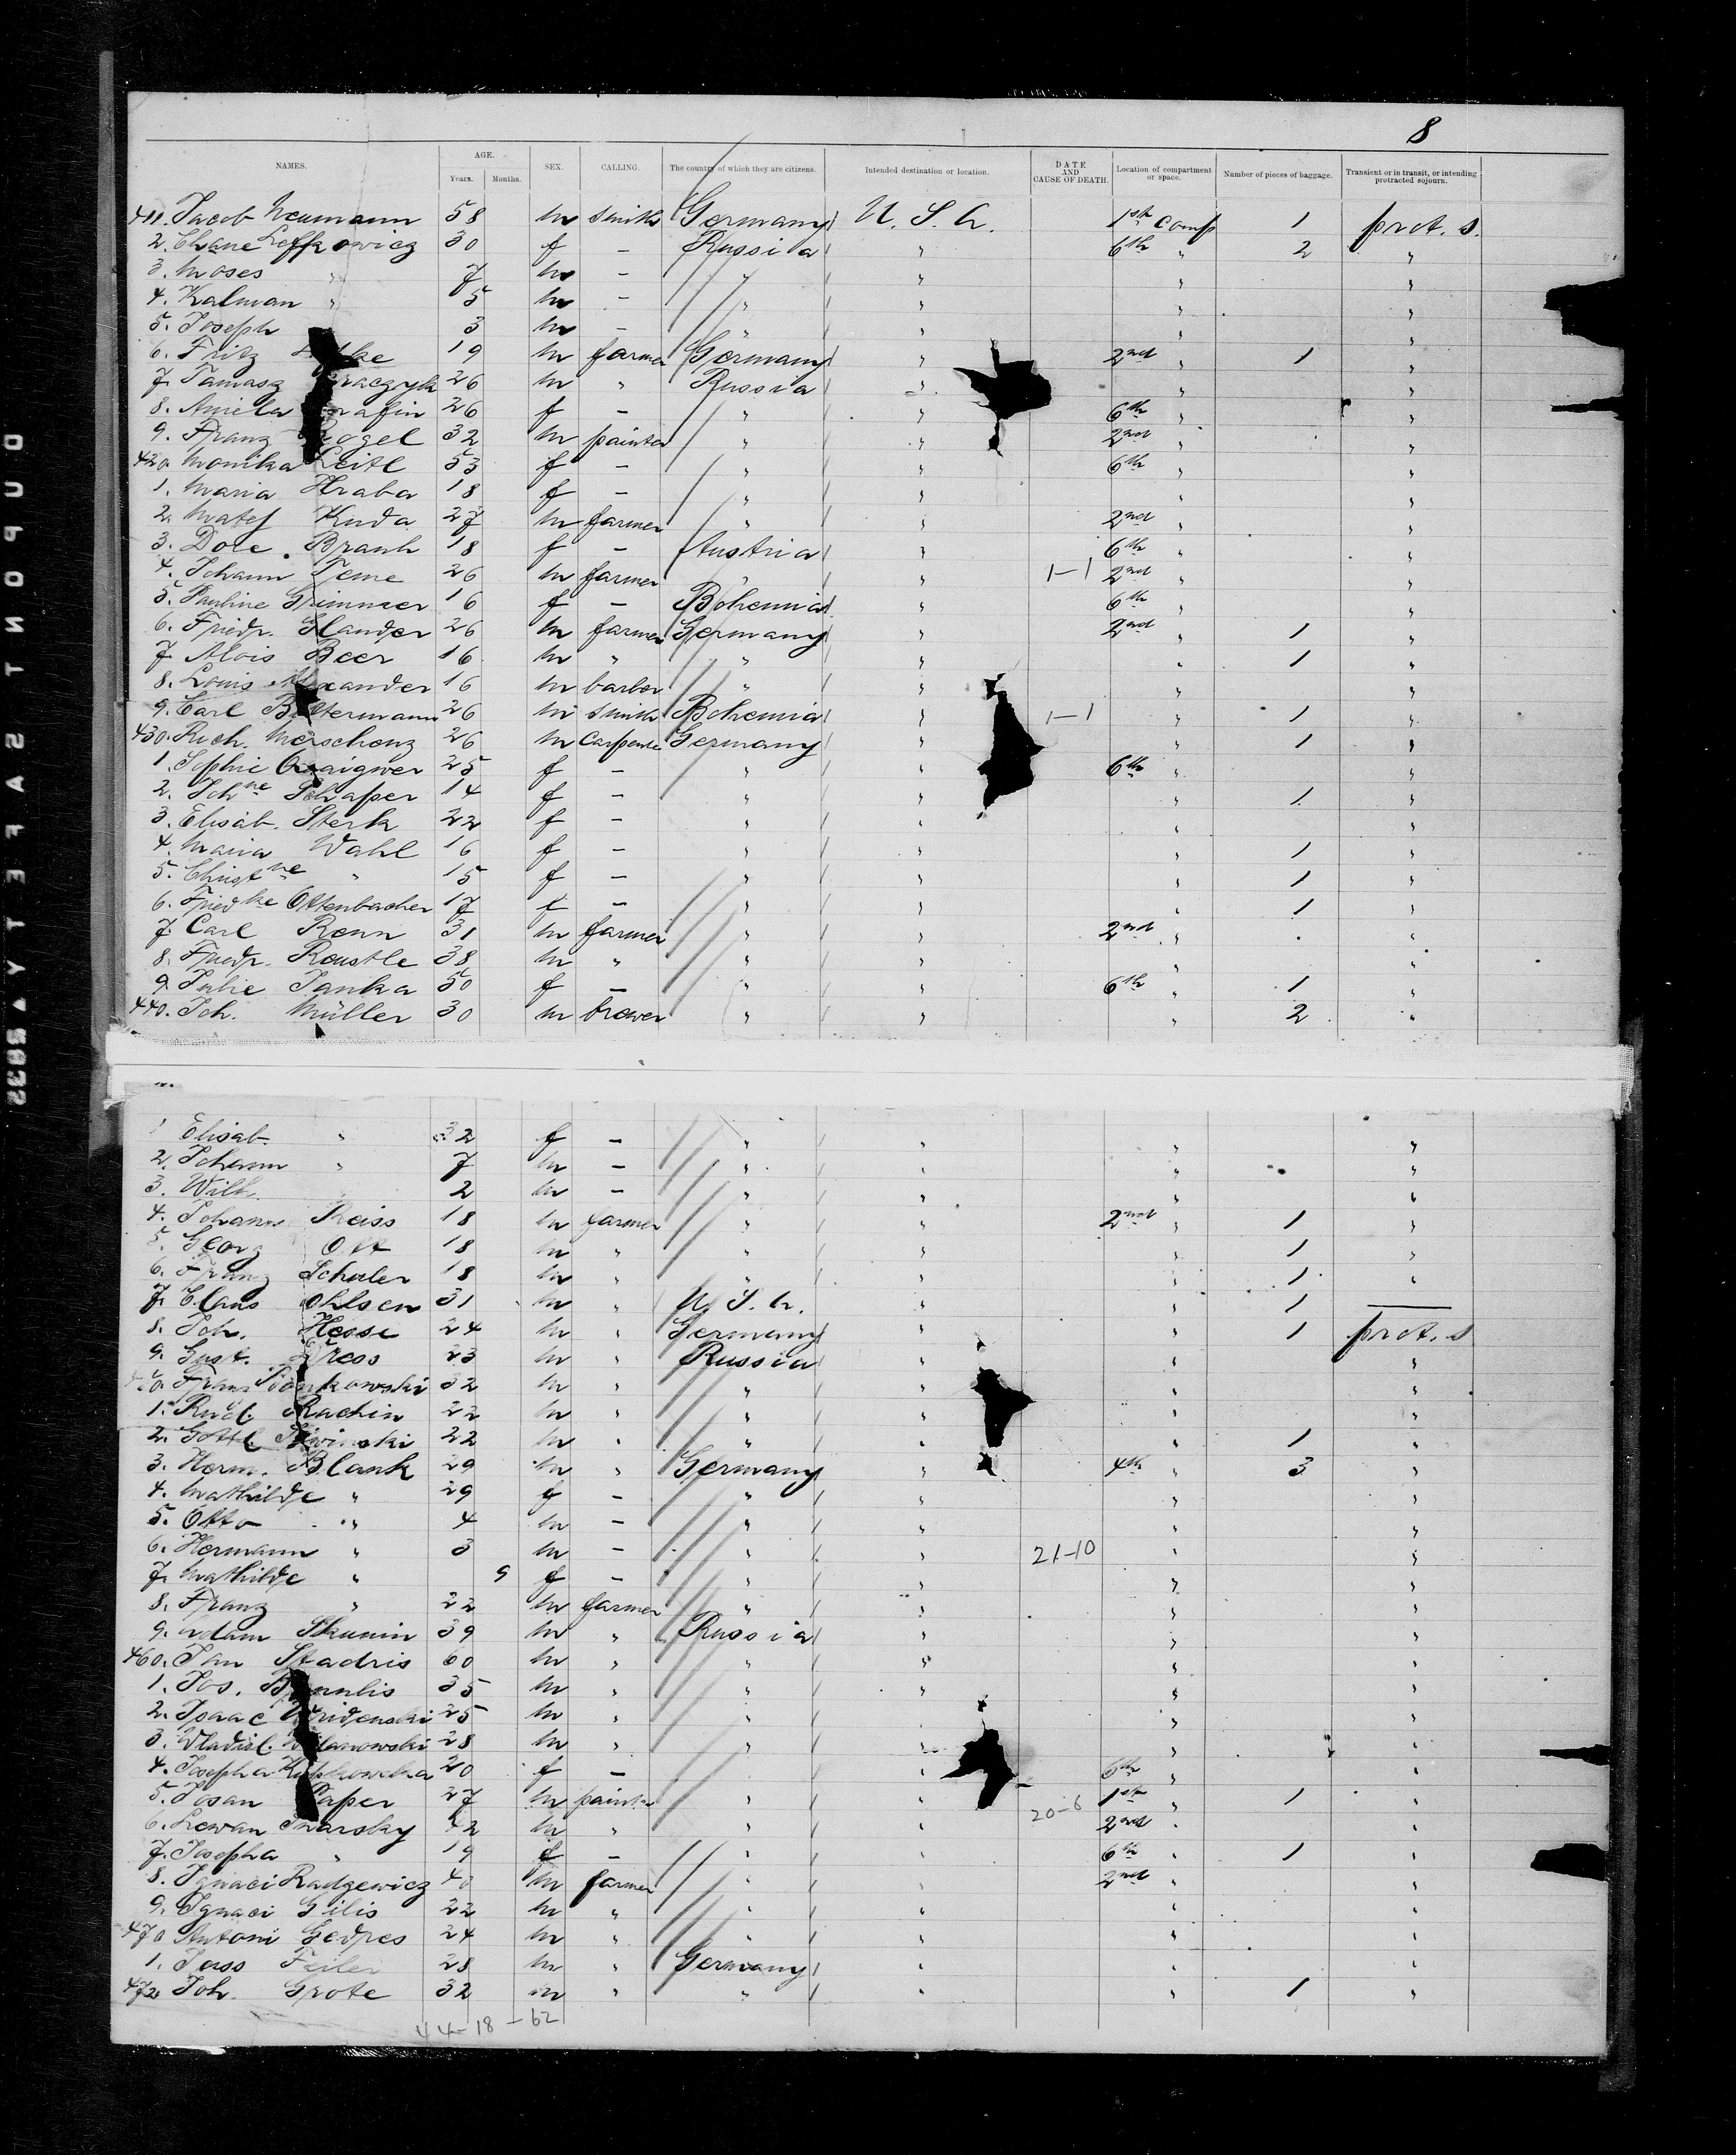 8
NAMES. AGE. Years. Months. SEX. CALLING. The country of which they are citizens. Intended destination or location. DATE AND CAUSE OF DEATH. Location of compartment or space. Number of pieces of baggage. Transient or in transit, or intending protracted sojourn.
411. Jacob Neumann 58 m smith Germany U. S. A. 1st comp 1 prot. s.
2. Chane Leffkowicz 30 f – Russia " 6th " 2 "
3. Moses " 7 m – " " " "
4. Kalman " 5 m – " " " "
5. Joseph 3 m – " " " "
6. Fritz 19 m farmer Germany " 2nd " 1 "
7. Tamasz 26 m " Russia " " "
8. Aniela 26 f – " " 6th " "
9. Franz 32 m painter " " 2nd " "
420. Monika Leitl 53 f – " " 6th " "
1. Maria Hraba 18 f – " " " "
2. Matej Kuda 27 m farmer " " 2nd " "
3. Dore Branh 18 f – Austria " 6th " "
4. Johann Teme 26 m farmer " " 1-1 2nd " "
5. Pauline Grimmer 16 f – Bohemia " 6th " "
6. Friedr. Glander 26 m farmer Germany " 2nd " 1 "
7. Alois Beer 16 m " " " " 1 "
8. Louis Alexander 16 m barber " " " "
9. Carl Bittermann 26 m smith Bohemia " 1-1 " 1 "
430. Rich. Merschenz 26 m Carpenter Germany " " 1 "
1. Sophie 25 f – " " 6th " "
2. Johne Schaper 14 f – " " " 1 "
3. Elisab. Sterk 22 f – " " " "
4. Maria Wahl 16 f – " " " 1 "
5. Christne " 15 f – " " " 1 "
6. Friedke Ottenbacher 17 f – " " " 1 "
7. Carl Renn 31 m farmer " " 2nd " "
8. Friedr. Raustle 38 m " " " " "
9. Julie Janka 50 f – " " 6th " 1 "
440. Joh. Müller 30 m brewer " " " 2 "
1 Elisab. " 32 f – " " " "
2. Johann " 7 m – " " " "
3. Wilh. 2 m – " " " "
4. Johann Reiss 18 m farmer " " 2nd " 1 "
5. Georg Ott 18 m " " " " 1 "
6. Franz Schuler 18 m " " " " 1 "
7. Claus Ohlsen 31 m " U. S. A. " " 1 —
8. Joh. Hesse 24 m " Germany " " 1 prot. s
9. Gust. Dress 23 m " Russia " " "
Franz Piankowski 32 m " " " " "
1. Rud. Rachin 22 m " " " " "
2. Gottl. 22 m " " " " 1 "
3. Herm. Blank 29 m " Germany " 4th " 3 "
4. Mathilde " 29 f – " " " "
5. Otto " 4 m – " " " "
6. Hermann " 3 m – " " 21-10 " "
7. Mathilde " 9 f – " " " "
8. Franz " 22 m farmer " " " "
9. Adam Skunin 39 m " Russia " " "
460. Jan Stadris 60 m " " " " "
1. Jos. 35 m " " " " "
2. Isaac 25 m " " " " "
3. Wladisl. 28 m " " " " "
4. Josepha 20 f – " " 6th " "
5. Josan Paper 27 m painter " " 1st " 1 "
6. Lewan Twarsky 42 m " " " 20-6 2nd " "
7. Josepha " 19 f – " " 6th " 1 "
8. Ignaci Radzewicz 40 m farmer " " 2nd " "
9. Ignaci Gilis 22 m " " " " "
470 Antoni Gedres 24 m " " " " "
1. Jass Feiler 28 m " Germany " " "
472. Joh. Grote 32 m " " " " 1 "
44-18-62